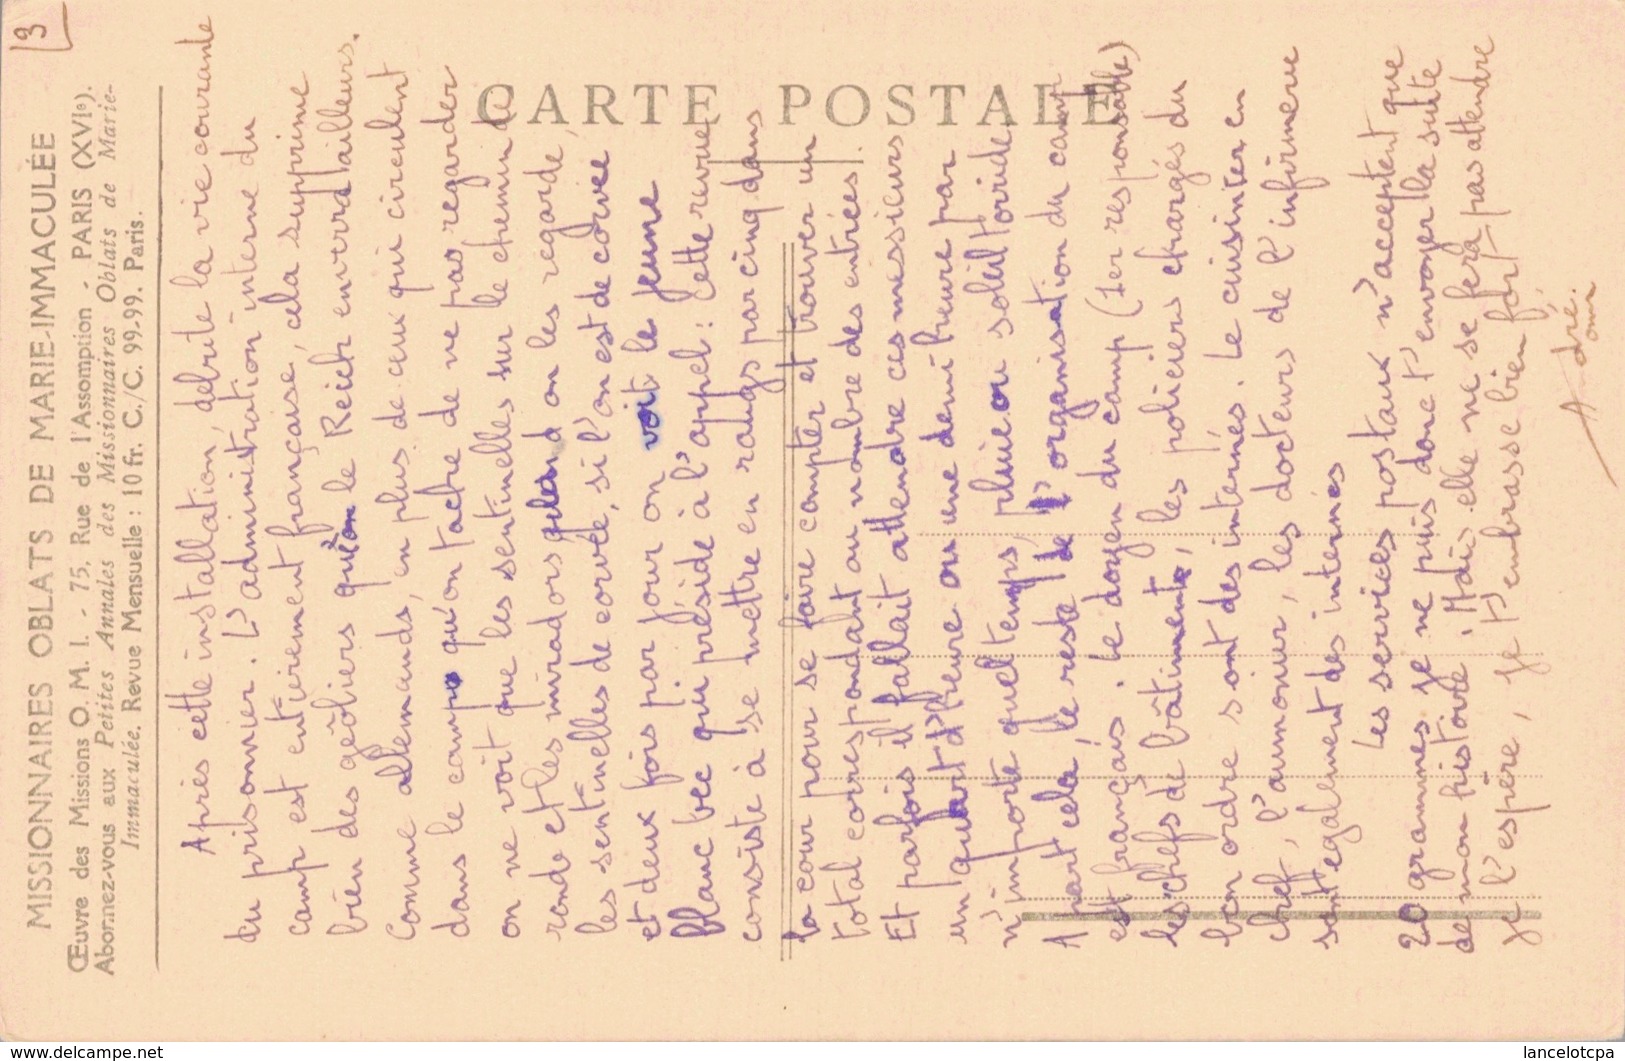 3
MISSIONNAIRES OBLATS DE MARIE-IMMACULÉE
Œuvre des Missions O. M. I. - 75, Rue de l'Assomption - PARIS (XVIe).
Abonnez-vous aux Petites Annales des Missionnaires Oblats de Marie-
Immaculée. Revue Mensuelle : 10 fr. C./C. 99-99. Paris.
CARTE POSTALE
Après cette installation, débute la vie courante
du prisonnier. L'administration interne du
camp est entièrement française, cela supprime
bien des geôliers qu'on le Reich enverra d'ailleurs.
Comme allemands, en plus de ceux qui circulent
dans le camp qu'on tâche de ne pas regarder
on ne voit que les sentinelles sur le chemin de
ronde et les miradors quand on les regarde,
les sentinelles de corvée, si l'on est de corvée
et deux fois par jour on voit le jeune
blanc bec qui préside à l'appel : cette revue
consiste à se mettre en rangs par cinq dans
la cour pour se faire compter et trouver un
total correspondant au nombre des entrées.
Et parfois il fallait attendre ces messieurs
un quart d'heure ou une demi heure par
n'importe quel temps, pluie ou soleil torride.
A part cela, le reste de l'organisation du camp
est français. Le doyen du camp (1er responsable)
les chefs de bâtiments, les policiers chargés du
bon ordre sont des internés. Le cuisinier en
chef, l'aumonier, les docteurs de l'infirmerie
sont également des internés
Les services postaux n'acceptent que
20 grammes je ne puis donc t'envoyer la suite
de mon histoire. Mais elle ne se fera pas attendre
je l'espère, je t'embrasse bien fort
André
www.delcampe.net
lancelotcpa